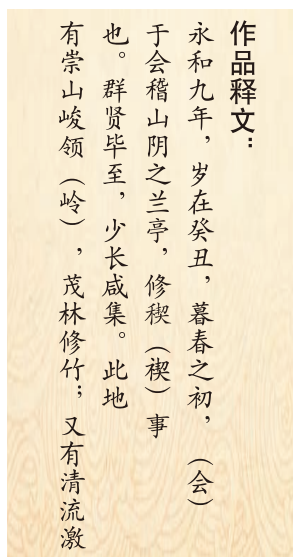 作品释文：
永和九年，岁在癸丑，暮春之初，（会）
于会稽山阴之兰亭，修稧（禊）事
也。群贤毕至，少长咸集。此地
有崇山峻领（岭），茂林修竹；又有清流激